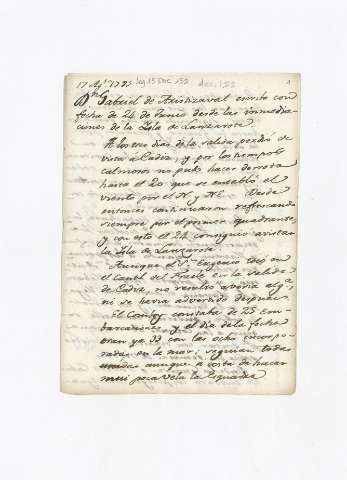 17 Ag.to 1793 Leg 15 Doc 152 doc. 152 1
Dn Gabriel de Aristizaval escrivio con
fecha de 24 de Junio desde las inmedia
ciones de la Isla de Lanzarote
A los tres dias de la salida perdió de
vista á Cadiz, y por los tiempos
calmosos no pudo hacer derrota
hasta el 20 que se entabló el
viento por el N y NE. Desde
entonces continuaron refrescando
siempre por el primer quadrante,
y con esto el 24 consiguió avistar
la Isla de Lanzarote.
Aunque el Sn Eugenio tocó en
el Cantil del Fraile en la salida
de Cadiz, no resultó averia alga
ni se havia advertido despues
El Comboy constaba de 25 em
barcaciones, y el dia de la fecha
eran ya 33 con las ocho incorpo
radas en la mar, seguian todas
unidas aunque a costa de hacer
mui poca vela la Esquadra